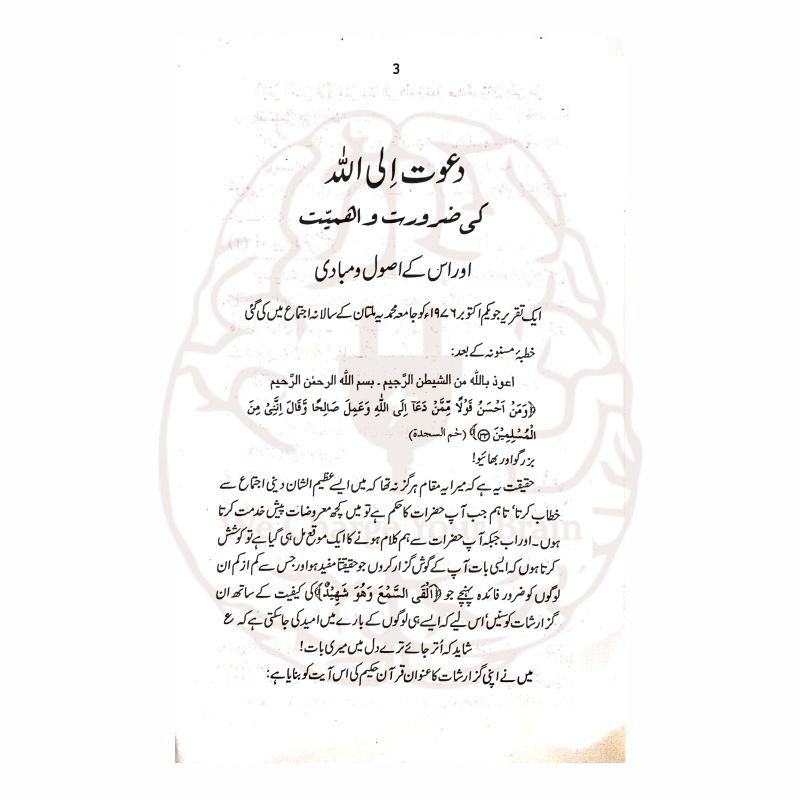 3
دعوت اِلی اللہ
کی ضرورت و اہمیّت
اور اس کے اصول و مبادی
ایک تقریر جو یکم اکتوبر ۱۹۷۶ء کو جامعہ محمدیہ ملتان کے سالانہ اجتماع میں کی گئی
خطبۂ مسنونہ کے بعد:
اعوذ باللّٰہ من الشیطٰن الرَّجیم ۔ بسم اللّٰہ الرحمٰن الرَّحیم
﴿وَمَنْ اَحْسَنُ قَوْلًا مِّمَّنْ دَعَآ اِلَى اللّٰهِ وَعَمِلَ صَالِحًا وَّقَالَ اِنَّنِیْ مِنَ
الْمُسْلِمِیْنَ ۝۳۳﴾ (حٰم السجدة)
بزرگو اور بھائیو!
حقیقت یہ ہے کہ میرا یہ مقام ہرگز نہ تھا کہ میں ایسے عظیم الشان دینی اجتماع سے
خطاب کرتا، تاہم جب آپ حضرات کا حکم ہے تو میں کچھ معروضات پیش خدمت کرتا
ہوں ۔ اور اب جبکہ آپ حضرات سے ہم کلام ہونے کا ایک موقع مل ہی گیا ہے تو کوشش
کرتا ہوں کہ ایسی بات آپ کے گوش گزار کروں جو حقیقتاً مفید ہو اور جس سے کم از کم ان
لوگوں کو ضرور فائدہ پہنچے جو ﴿اَلْقَی السَّمْعَ وَهُوَ شَهِیْدٌ﴾ کی کیفیت کے ساتھ ان
گزارشات کو سنیں، اس لیے کہ ایسے ہی لوگوں کے بارے میں امید کی جا سکتی ہے کہ ع
شاید کہ اُتر جائے ترے دل میں میری بات!
میں نے اپنی گزارشات کا عنوان قرآن حکیم کی اس آیت کو بنایا ہے: